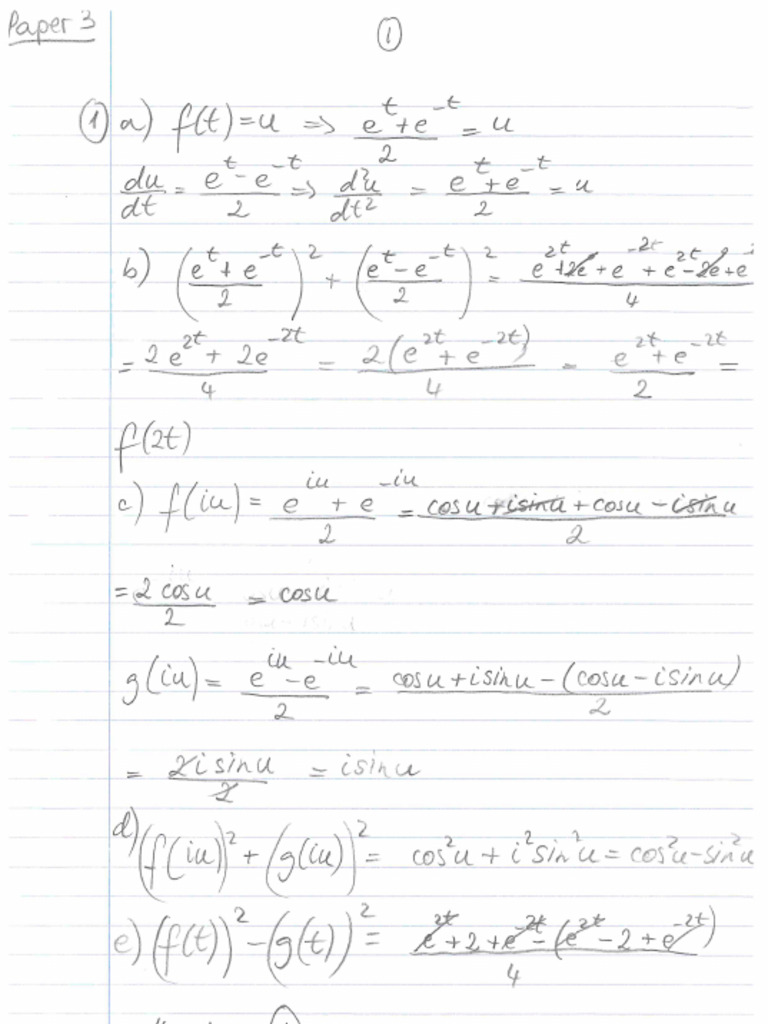 Paper 3
①
① a) f(t)=u => (e^t+e^-t)/2 = u
du/dt = (e^t-e^-t)/2 => d²u/dt² = (e^t+e^-t)/2 = u
b) ((e^t+e^-t)/2)² + ((e^t-e^-t)/2)² = (e^2t+2e+e^-2t+e^2t-2e+e)/4
= (2e^2t+2e^-2t)/4 = 2(e^2t+e^-2t)/4 = (e^2t+e^-2t)/2 =
f(2t)
c) f(iu) = (e^iu+e^-iu)/2 = (cosu+isinu+cosu-isinu)/2
= 2cosu/2 = cosu
g(iu) = (e^iu-e^-iu)/2 = (cosu+isinu-(cosu-isinu))/2
= 2isinu/2 = isinu
d) (f(iu))²+(g(iu))² = cos²u+i²sin²u=cos²u-sin²u
e) (f(t))²-(g(t))² = (e^2t+2+e^-2t-(e^2t-2+e^-2t))/4